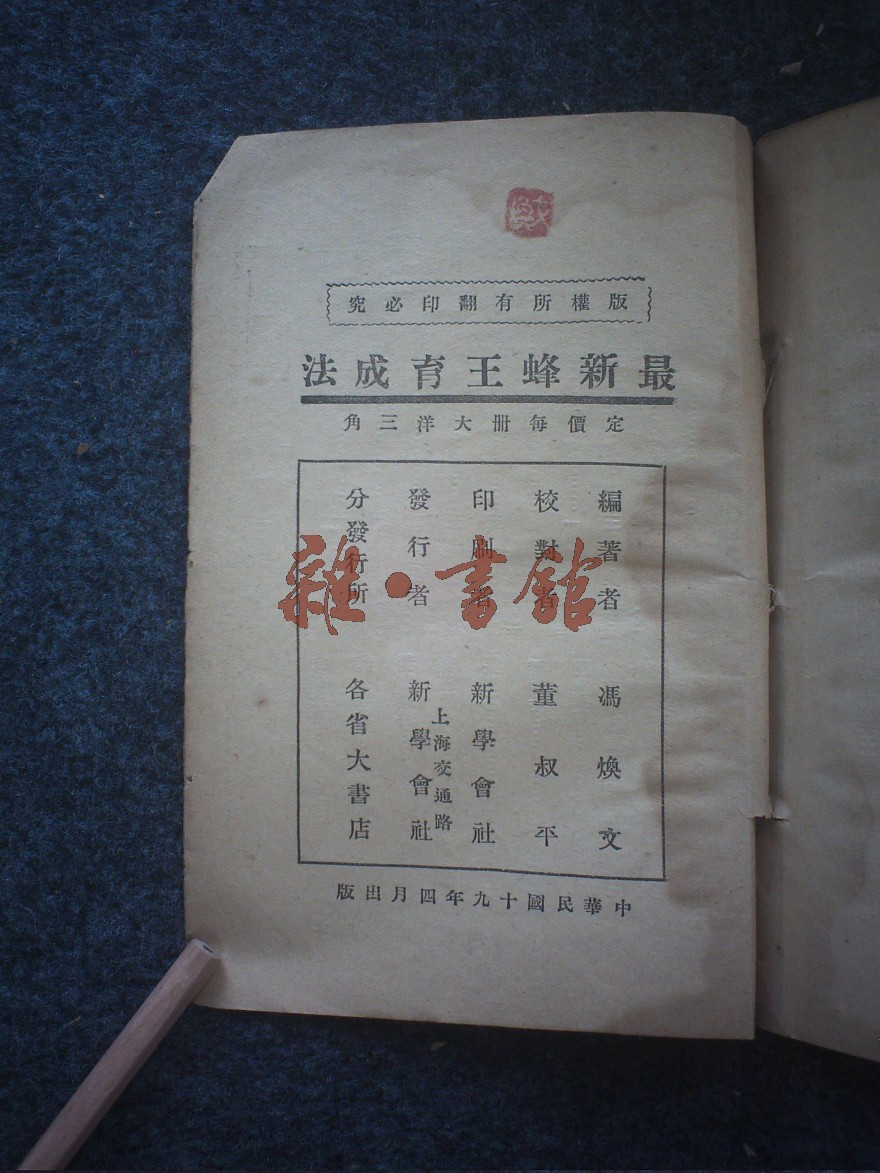 版權所有翻印必究
最新蜂王育成法
定價每册大洋三角
編著者 馮煥文
校對者 董叔平
印刷者 新學會社
上海交通路
發行者 新學會社
分發行所 各省大書店
中華民國十九年四月出版
雜·書館